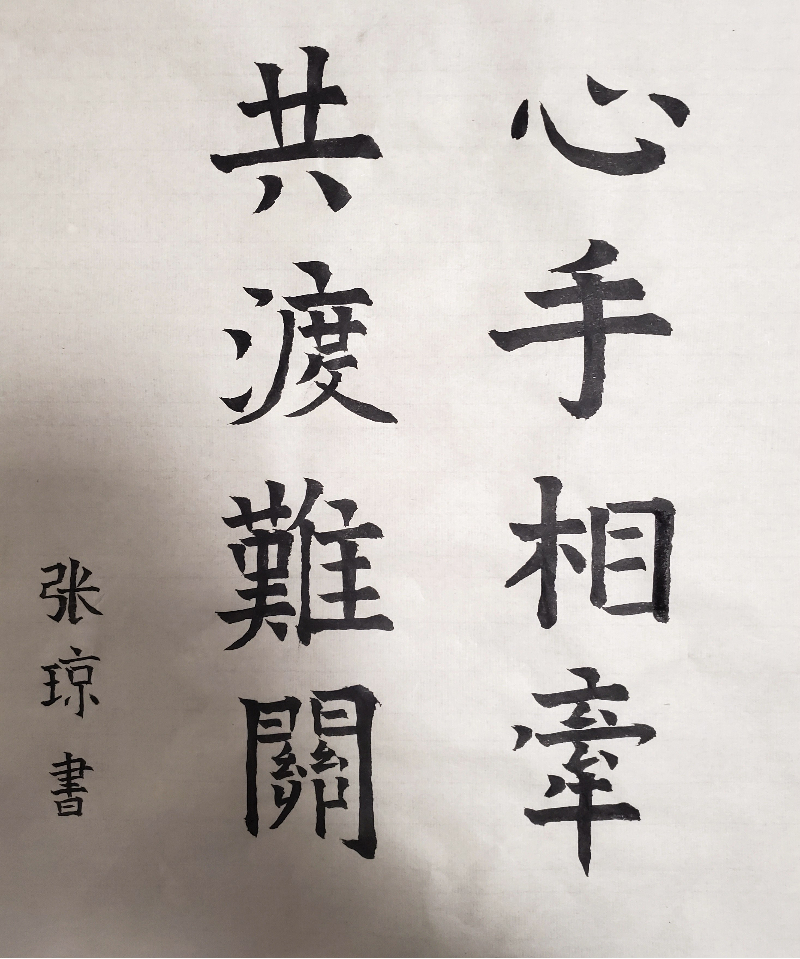 心手相牽
共渡難關
张琼書